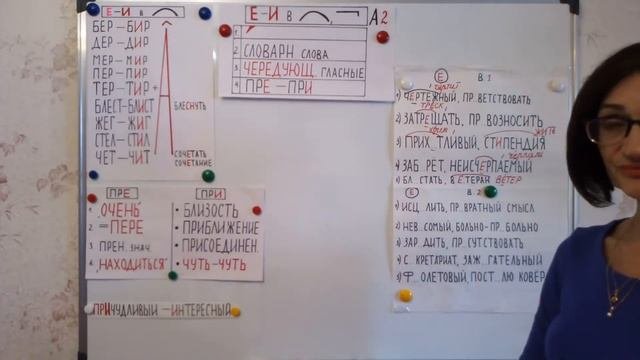 Е-И В
БЕР-БИР
ДЕР-ДИР
МЕР-МИР
ПЕР-ПИР
ТЕР-ТИР+
БЛЕСТ-БЛИСТ
ЖЕГ-ЖИГ
СТЕЛ-СТИЛ
ЧЕТ-ЧИТ
А
БЛЕСНУТЬ
СОЧЕТАТЬ
СОЧЕТАНИЕ
Е-И В , А2
1.
2. СЛОВАРН СЛОВА
3. ЧЕРЕДУЮЩ. ГЛАСНЫЕ
4. ПРЕ-ПРИ
ПРЕ
1. ,,ОЧЕНЬ"
2. =ПЕРЕ
3. ПРЕН. ЗНАЧ.
4. ,,НАХОДИТЬСЯ"
ПРИ
• БЛИЗОСТЬ
• ПРИБЛИЖЕНИЕ
• ПРИСОЕДИНЕН.
• ЧУТЬ-ЧУТЬ
ПРИЧУДЛИВЫЙ-ИНТЕРЕСНЫЙ
Е В.1
1) ЧЕРТЕЖНЫЙ, ПР..ВЕТСТВОВАТЬ
ТРЕСК
2) ЗАТРЕЩАТЬ, ПР..ВОЗНОСИТЬ
3) ПРИХ..ТЛИВЫЙ, СТИПЕНДИЯ
4) ЗАБ..РЕТ, НЕИСЧЕРПАЕМЫЙ
5) БЛ..СТАТЬ, ВЕТЕРАН ВЕТЕР
Е В.2
1) ИСЦ..ЛИТЬ, ПР..ВРАТНЫЙ СМЫСЛ
2) НЕВ..СОМЫЙ, БОЛЬНО-ПР..БОЛЬНО
3) ЗАР..ДИТЬ, ПР..СУТСТВОВАТЬ
4) С..КРЕТАРИАТ, ЗАЖ..ГАТЕЛЬНЫЙ
5) Ф..ОЛЕТОВЫЙ, ПОСТ..ЛЮ КОВЕР